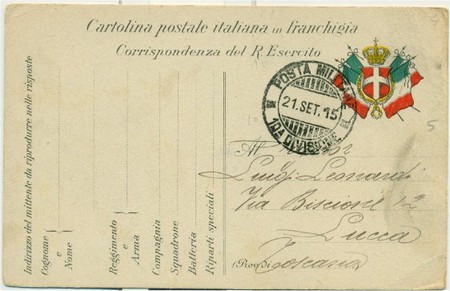 Cartolina postale italiana in franchigia
Corrispondenza del R. Esercito
POSTA MILITARE
21. SET. 15
10A DIVISIONE
Luigi Leonardi
Via Biscione 12
Lucca
(Prov. di) Toscana
Indirizzo del mittente da riprodurre nelle risposte
Cognome
e
Nome
Reggimento
e
Arma
Compagnia
Squadrone
Batteria
Riparti speciali
5